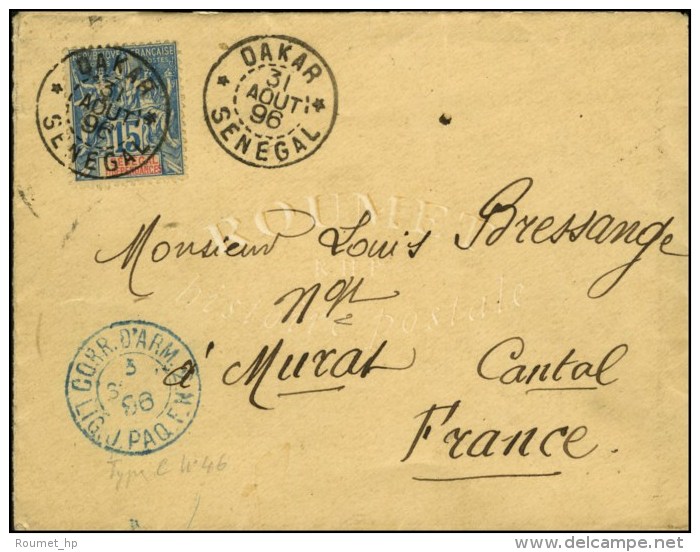 COLONIES FRANÇAISES
POSTES
DAKAR
31
AOUT
96
SENEGAL
15
SENEGAL
ET DEPENDANCES
DAKAR
31
AOUT
96
SENEGAL
ROUMET
histoire postale
Monsieur Louis Bressange
Ngt
à Murat Cantal
France
CORR. D'ARM.
3
S
96
LIG. J. PAQ. F. N
Type C N° 46
Roumet_hp
delcampe.net